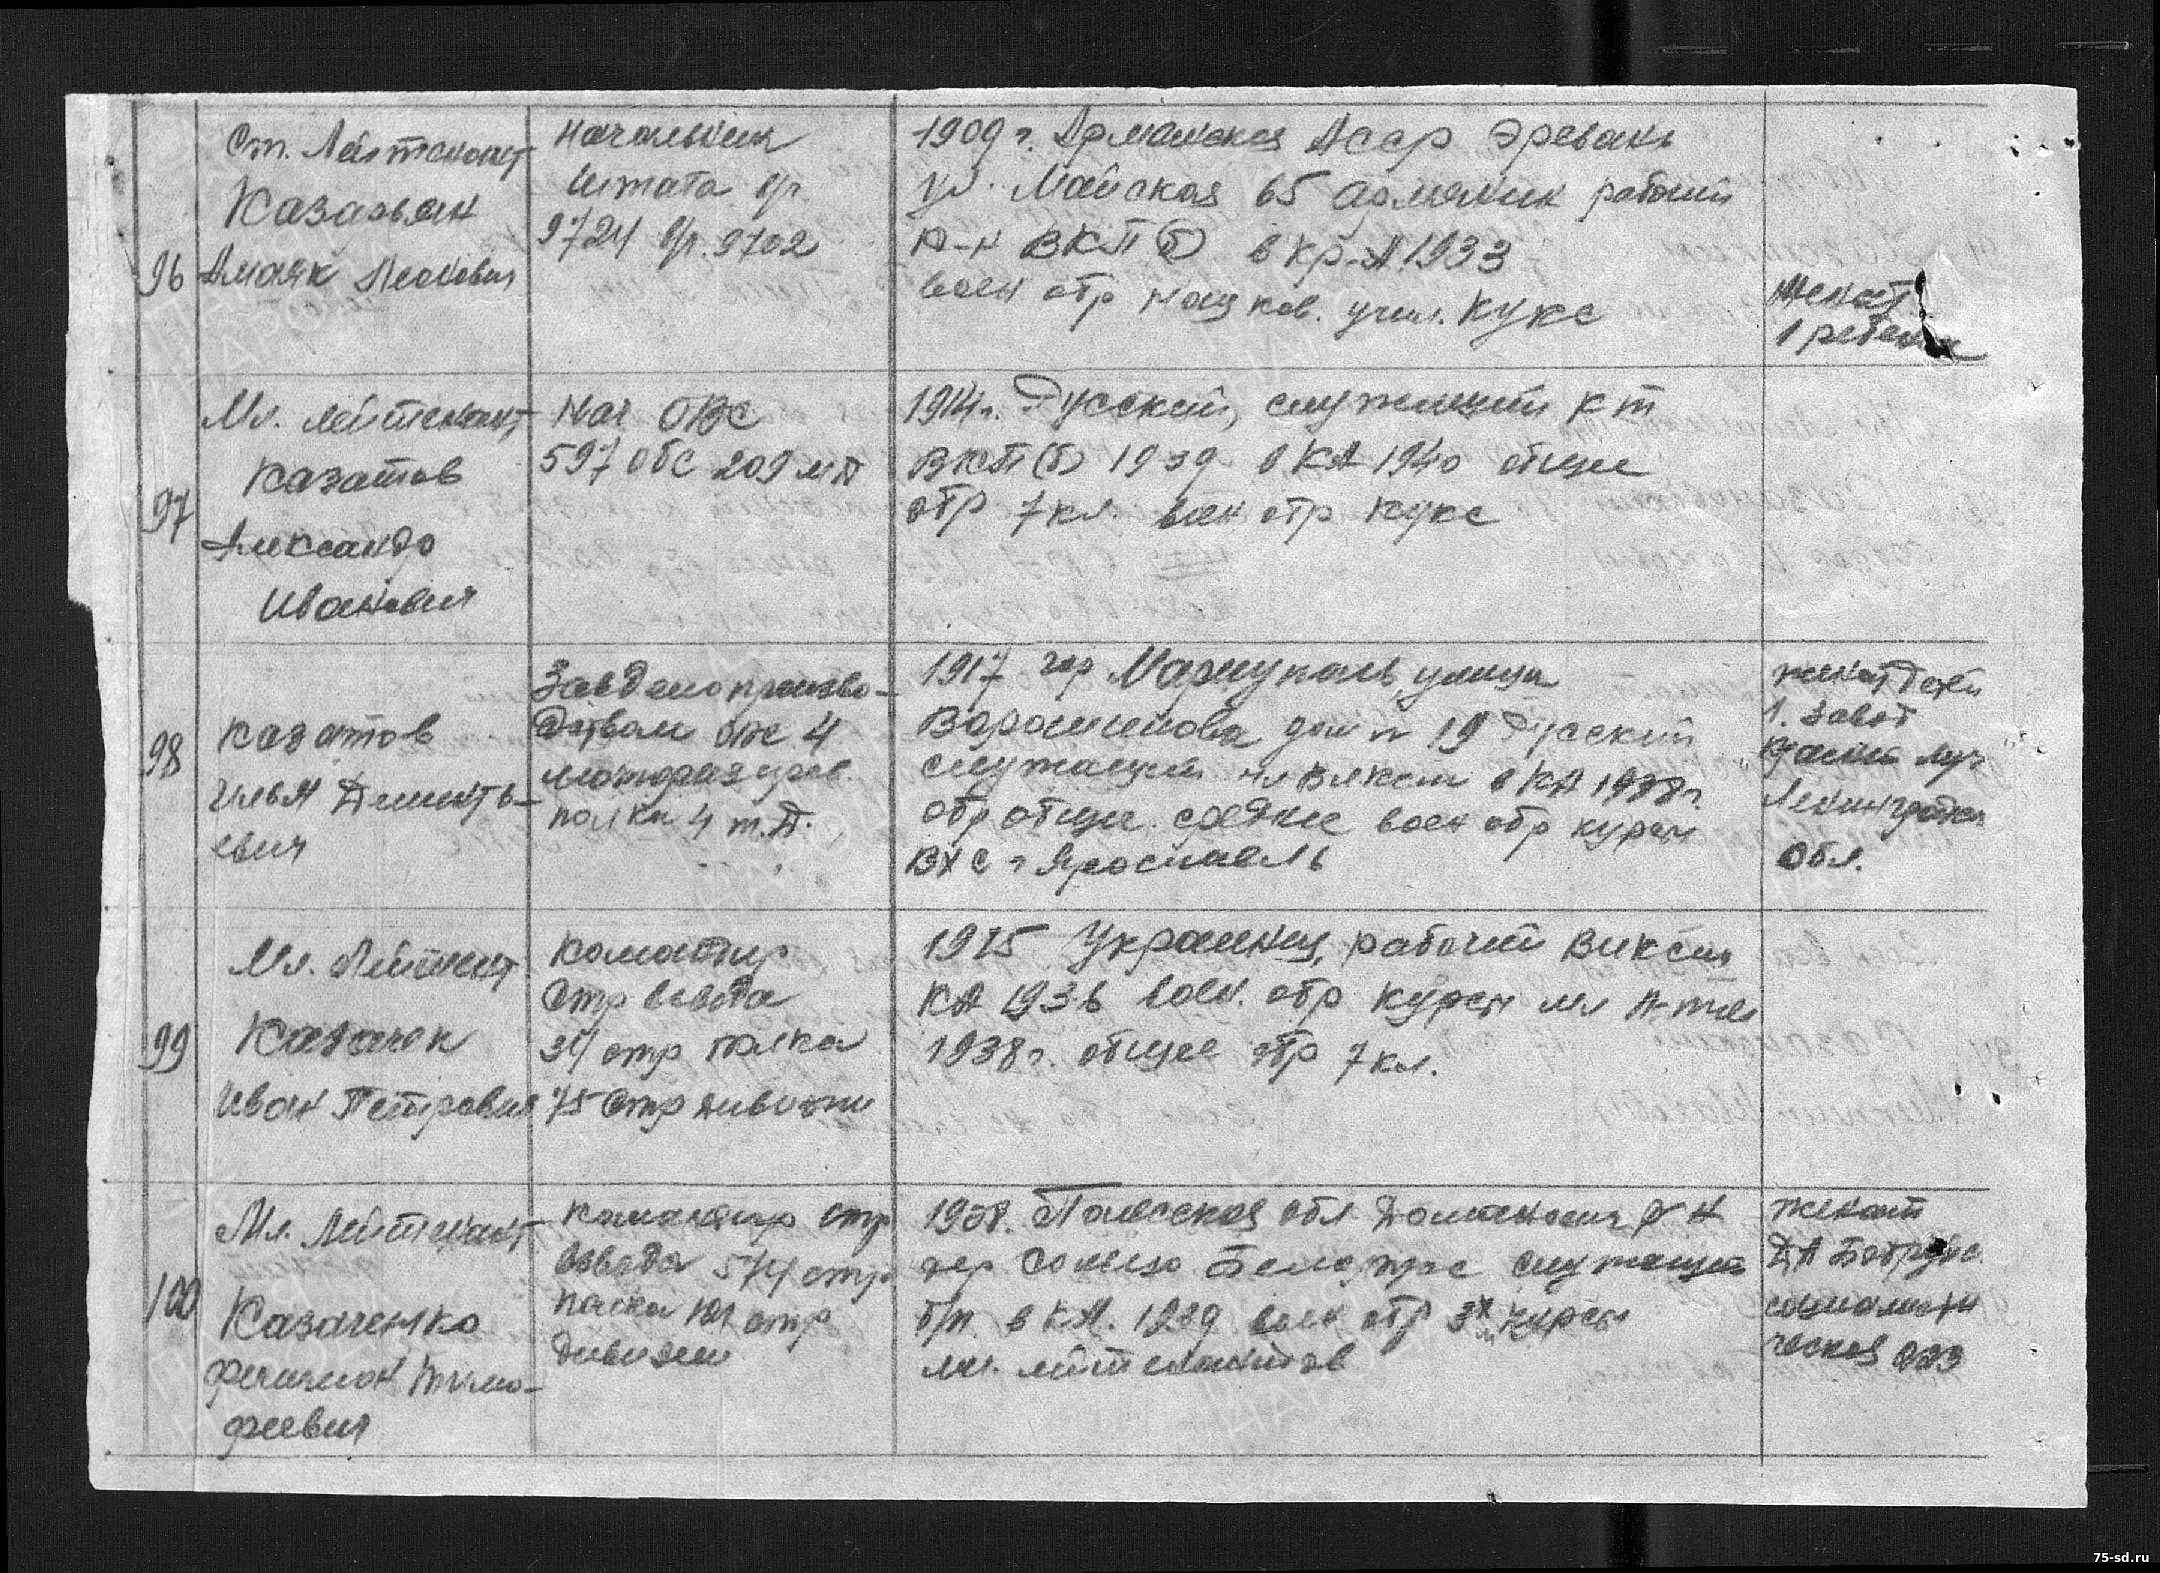 96
Ст. Лейтенант
Казарьян
Амаяк Леонович
Начальник
Штата п/р.
9724 п/р. 9702
1909 г. Армянская АССР Эревань
ул. Майская 65 армянин рабочий
К-н ВКП(б) в Кр-А 1933
воен обр нац кав. учил. КУКС
женат
1 ребенок
97
Мл. лейтенант
Казатов
Александр
Иванович
Нач ОВС
597 обс 209 МД
1914г. Русский, служащий к т
ВКП(б) 1939 в КА 1940 общее
обр 7 кл. воен обр кукс
98
Казатов
Илья Дмитрь-
евич
Завделопроизво-
дством ОВС 4
мотоциклет.
полка 4 т.д.
1917 гор Мариуполь, улица
Ворошилова дом н 19 Русский
служащий чл ВЛКСМ в КА 1938г.
обр общее среднее воен обр курсы
ВХС г Ярославль
женат дети
1. завод
Ленинградская
обл.
99
Мл. Лейтент
Казачек
Иван Петрович
Командир
стр взвода
34 стр полка
75 стр дивизии
1915 Украинец, рабочий ВЛКСМ
КА 1936 воен. обр курсы мл л-тов
1938г. общее обр 7 кл.
100
Мл. Лейтенант
Казаченко
Филимон Тимо-
феевич
Командир стр
взвода 574 стр
полка 121 стр
дивизии
1908. Полесская обл Доманович р-н
дер служащий
б/п. в КА. 1939 воен обр 3х курсы
мл. лейтенантов
женат
ДА Бобруйс
социалисти
ческая 223
75-sd.ru